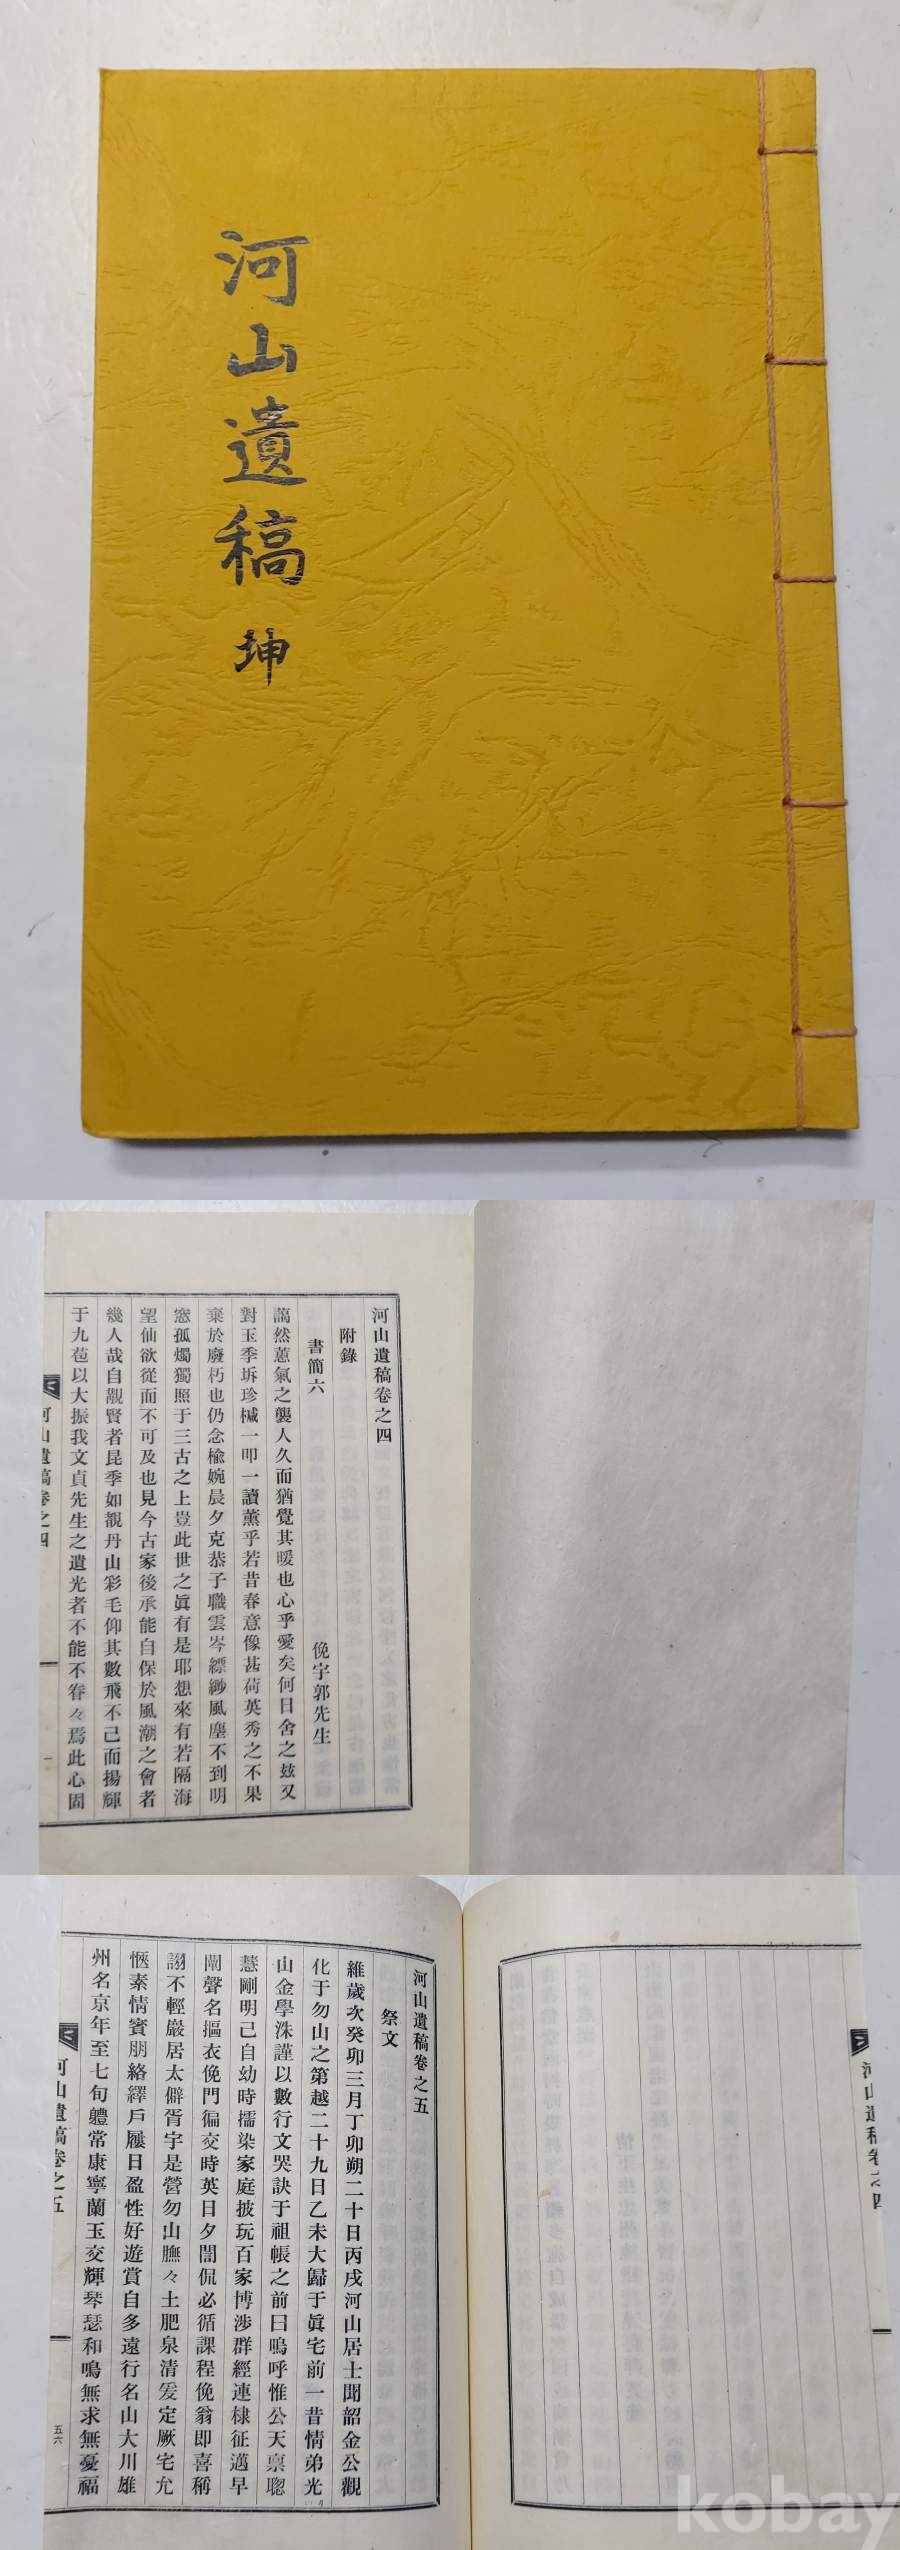 河山遺稿 坤
河山遺稿卷之四
附錄
書簡六 俛宇郭先生
藹然蕙氣之襲人久而猶覺其暖也心乎愛矣何日舍之玆又
對玉季坼珍椷一叩一讀薰乎若昔春意像甚荷英秀之不果
棄於廢朽也仍念楡婉晨夕克恭子職雲岑縹緲風塵不到明
窓孤燭獨照于三古之上豈此世之眞有是耶想來有若隔海
望仙欲從而不可及也見今古家後承能自保於風潮之會者
幾人哉自觀賢者昆季如覩丹山彩毛仰其數飛不已而揚輝
于九苞以大振我文貞先生之遺光者不能不眷々焉此心固
河山遺稿卷之四
一
河山遺稿卷之五
祭文
維歲次癸卯三月丁卯朔二十日丙戌河山居士聞韶金公觀
化于勿山之第越二十九日乙未大歸于眞宅前一昔情弟光
山金學洙謹以數行文哭訣于祖帳之前曰嗚呼惟公天禀聰
慧剛明己自幼時擩染家庭披玩百家博涉群經連棣征邁早
闡聲名摳衣俛門徧交時英日夕誾侃必循課程俛翁即喜稱
詡不輕嚴居太僻胥宇是營勿山膴々土肥泉清爰定厥宅允
愜素情賓朋絡繹戶屨日盈性好遊賞自多遠行名山大川雄
州名京年至七旬軆常康寧蘭玉交輝琴瑟和鳴無求無憂福
河山遺稿卷之五
五六
河山遺稿卷之四
kobay